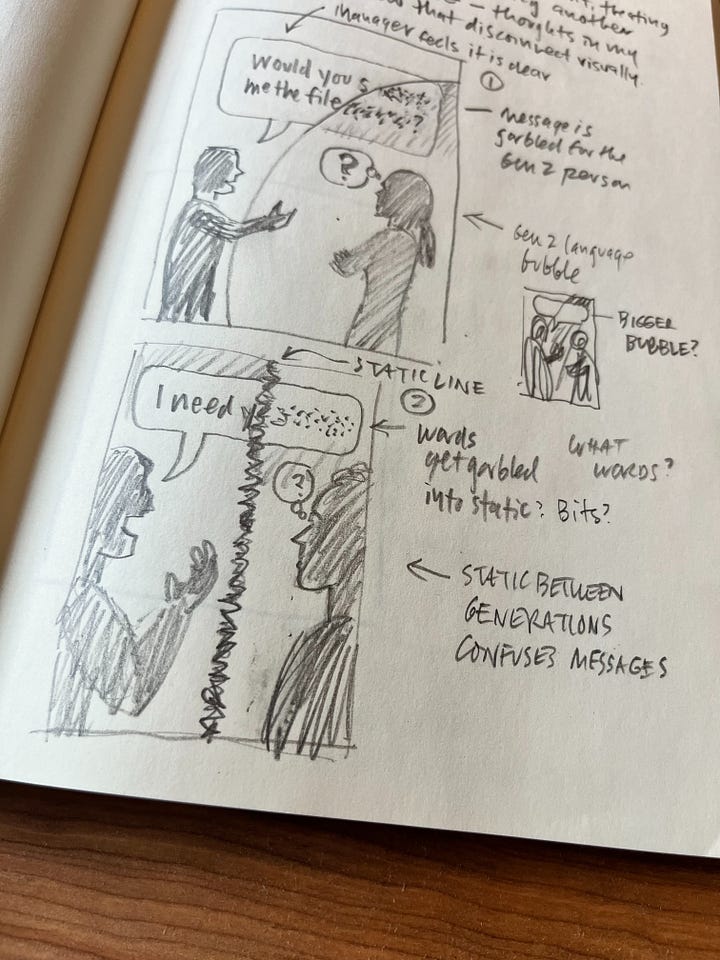 another
thoughts in my
that disconnect visually.
Manager feels it is clear
Would you s
me the file ?
①
Message is
garbled for the
Gen Z person
?
Gen Z language
bubble
BIGGER
BUBBLE?
STATIC LINE
②
I need y
words
get garbled
into static? Bits?
WHAT
WORDS?
?
STATIC BETWEEN
GENERATIONS
CONFUSES MESSAGES